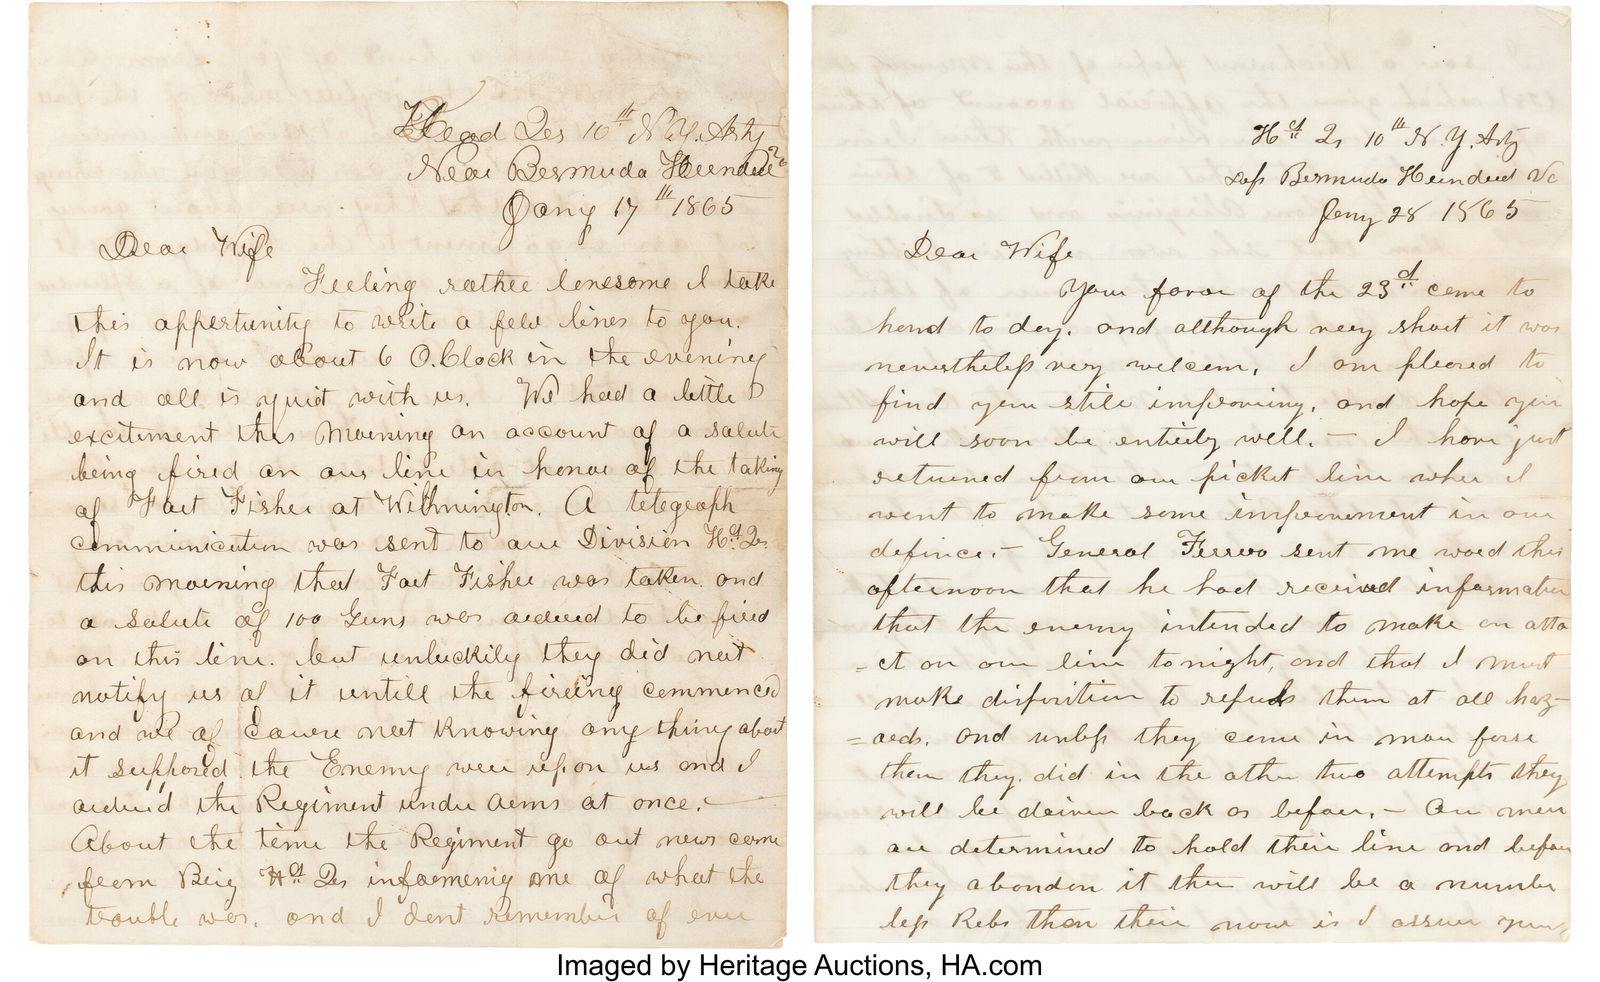 Head Qrs 10th N.Y. Arty
Near Bermuda Hundred
Jany 17th 1865
Dear Wife
Feeling rather lonesome I take
this oppertunity to write a few lines to you.
It is now about 6 O.Clock in the evening
and all is quiet with us. We had a little
excitement this Morning on account of a salute
being fired on our line in honor of the taking
of Fort Fisher at Wilmington. A telegraph
communication was sent to our Division Hd Qrs
this morning that Fort Fisher was taken and
a salute of 100 Guns was ordered to be fired
on this line. but unluckily they did not
notify us of it untill the fireing commenced
and we of Course not knowing any thing about
it supposed the Enemy were upon us and I
orderd the Regiment under Arms at once. —
About the time the Regiment go out news come
from Brig Hd Qrs informing me of what the
trouble was. and I dont remember of ever
Hd Qrs 10th N.Y. Arty
Bermuda Hundred Va
Jany 28 1865
Dear Wife
Your favor of the 23d came to
hand to day. and although very short it was
nevertheless very welcom. I am pleased to
find you still improving. and hope you
will soon be entirly well. — I have just
returned from our picket line where I
went to make some improvement in our
defince. — General Ferrero sent me word this
afternoon that he had received information
that the enemy intended to make an atta
= ct on our line tonight, and that I must
make disposition to repuls them at all haz-
= ards. and unless they come in more force
than they did in the other two attempts they
will be driven back as before. — Our men
are determined to hold their line and before
they abandon it there will be a number
less Rebs than their now is I assure you
Imaged by Heritage Auctions, HA.com